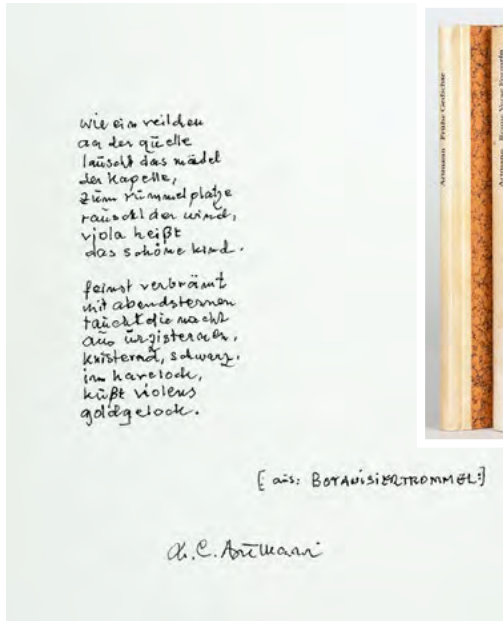 wie ein veilchen
an der quelle
lauscht das mädel
der kapelle,
zum rummelplatze
rauscht der wind,
viola heißt
das schöne kind.
feinst verbrämt
mit abendsternen
taucht die nacht
aus urzisternen,
knisternd, schwarz,
im havelock,
küßt violens
goldgelock.
[aus: BOTANISIERTROMMEL:]
H. C. Artmann
Artmann Frühe Gedichte